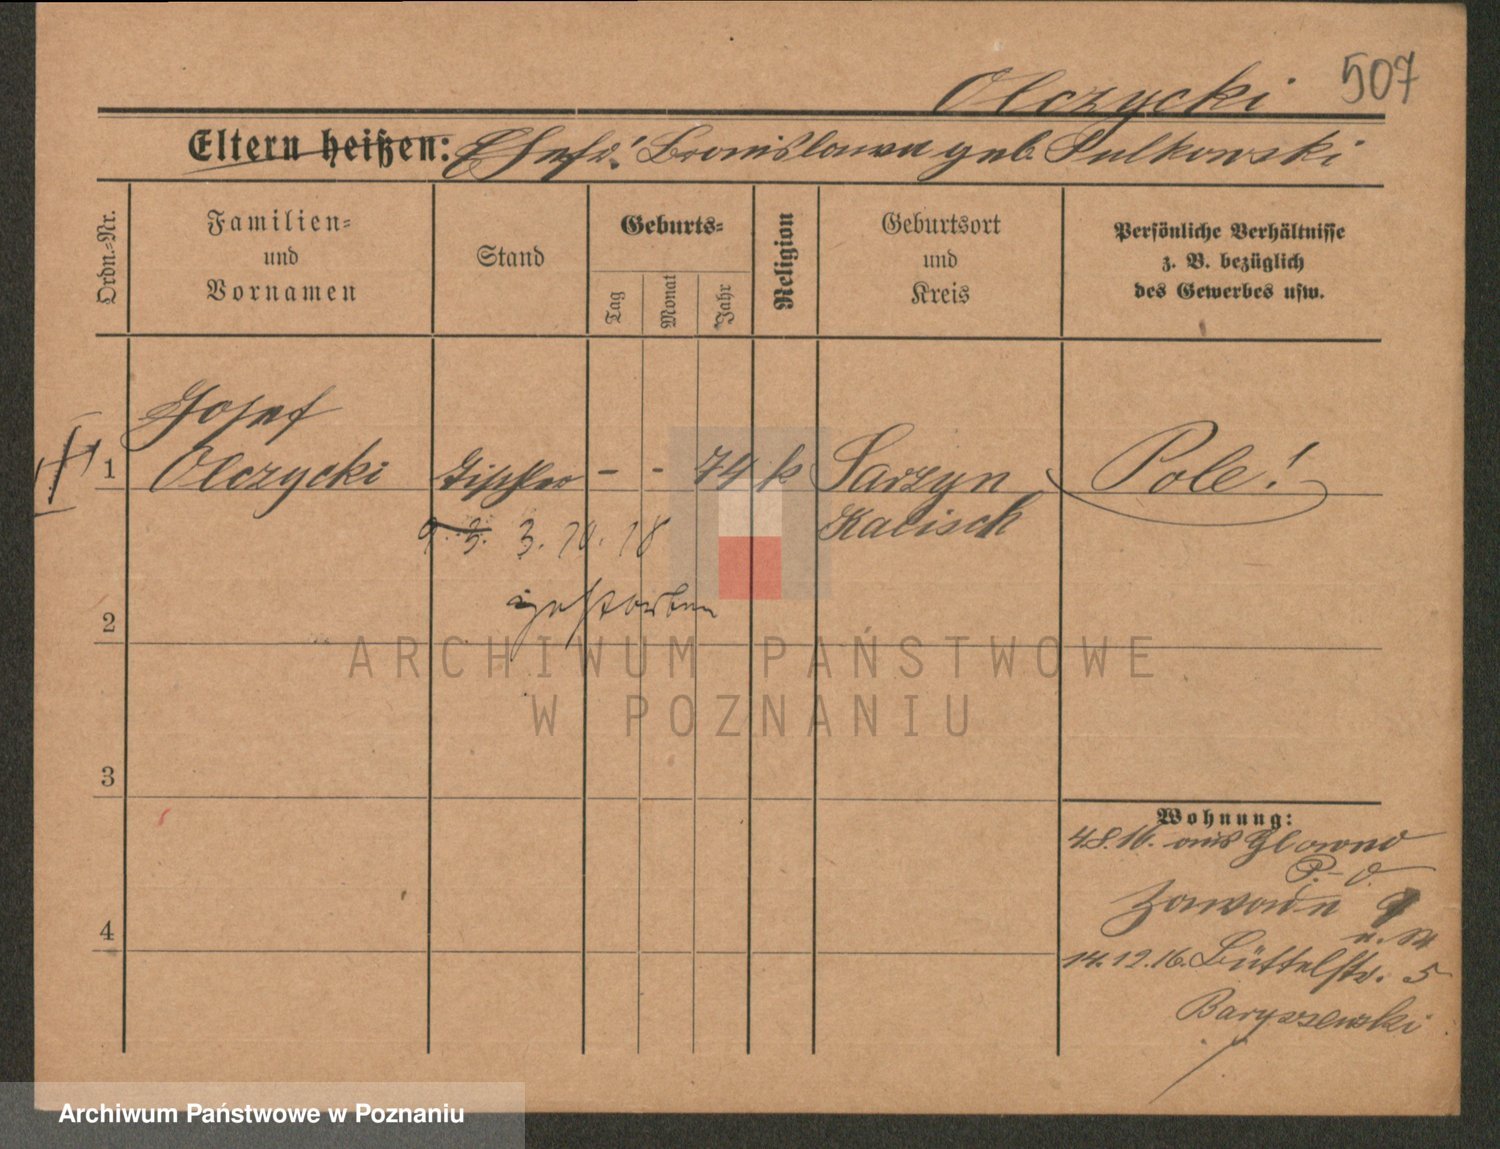 Olczycki 507
Eltern heißen: Ehefr. Bronislawa geb. Pulkowski
Ordn.-Nr.
Familien-
und
Vornamen
Stand
Geburts-
Tag
Monat
Jahr
Religion
Geburtsort
und
Kreis
Persönliche Verhältnisse
z. B. bezüglich
des Gewerbes usw.
Josef
1 Olczycki Tischler - - 74 k Sarzyn Pole!
Kalisch
3. 10. 18
gestorben
2
3
4
Wohnung:
4.8.16. aus Glowno
P.-O.
Zawade
14.12.16. Büttelstr. 5
Baryszewski
ARCHIWUM PAŃSTWOWE
W POZNANIU
Archiwum Państwowe w Poznaniu